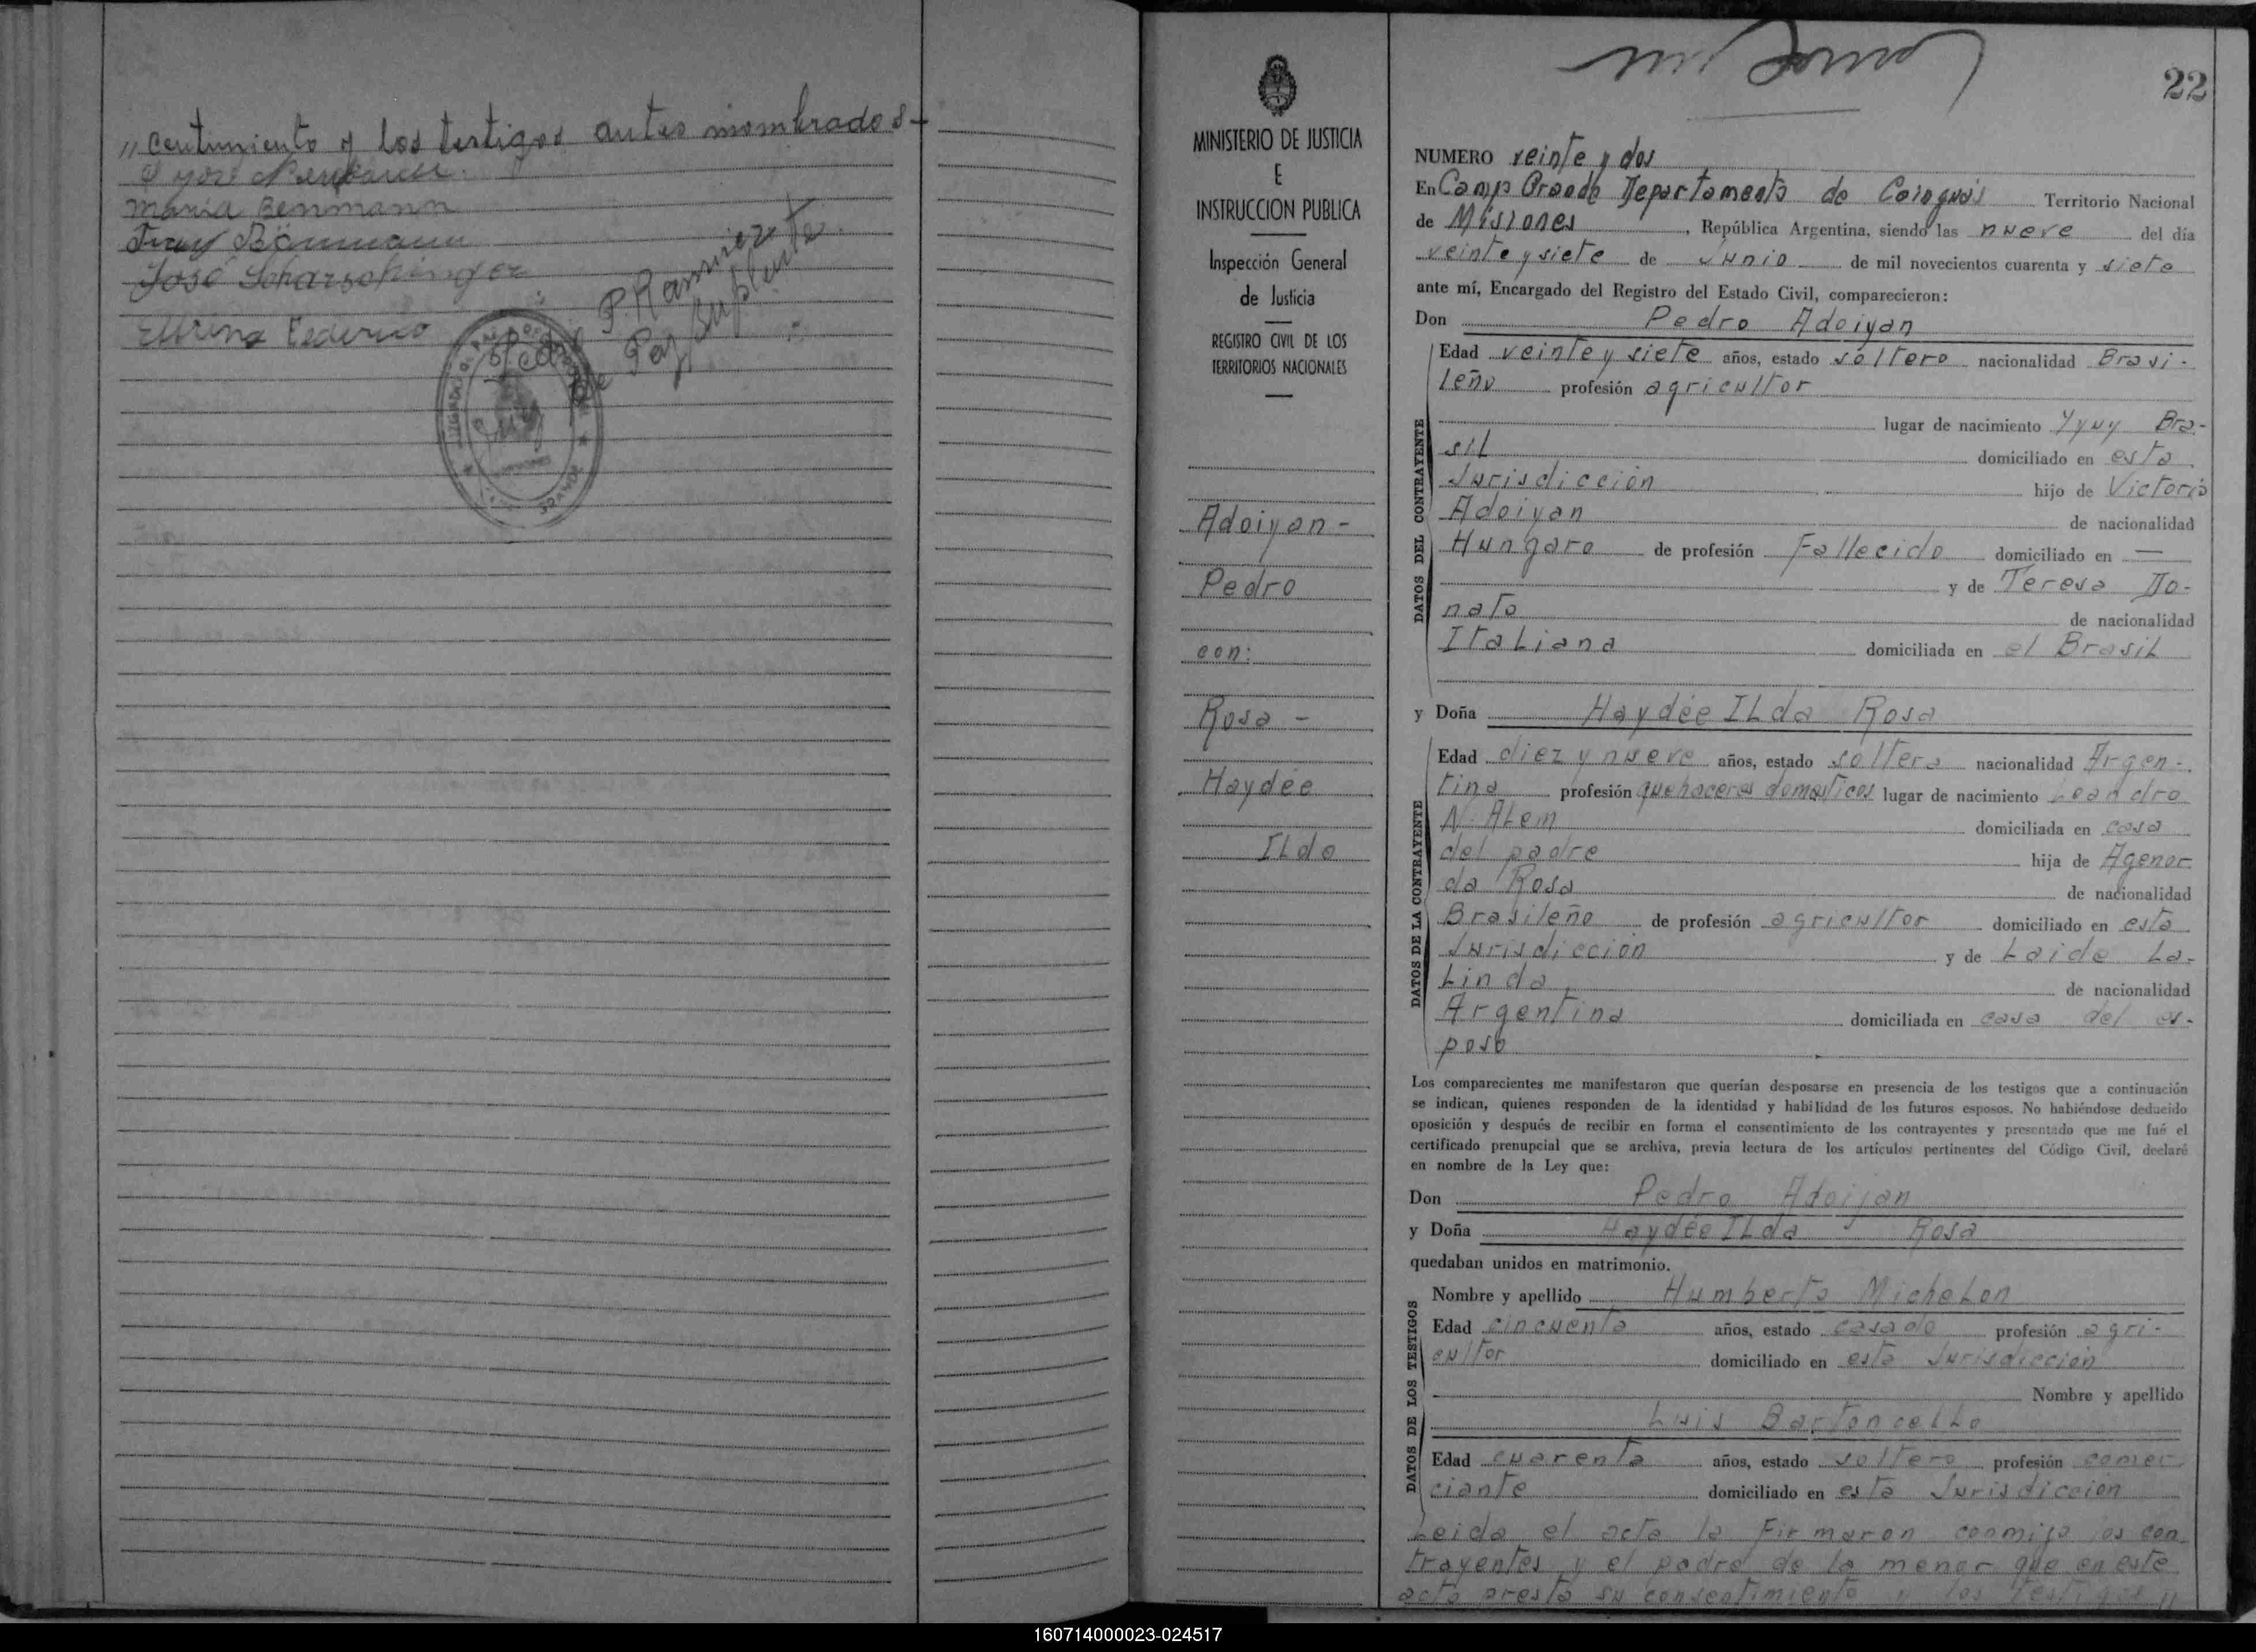 ,, centimiento y los testigos antes nombrados-
Maria Benmann
José Scharschinger
Federico
Pedro P. Ramirez
Juez de Paz Suplente
MINISTERIO DE JUSTICIA
E
INSTRUCCION PUBLICA
Inspección General
de Justicia
REGISTRO CIVIL DE LOS
TERRITORIOS NACIONALES
Adoiyan-
Pedro
con:
Rosa -
Haydée
ILda
22
NUMERO veinte y dos
En Campo Grande Departamento de Cainguás Territorio Nacional
de Misiones, República Argentina, siendo las nueve del día
veinte y siete de Junio de mil novecientos cuarenta y siete
ante mí, Encargado del Registro del Estado Civil, comparecieron:
Don Pedro Adoiyan
DATOS DEL CONTRAYENTE
Edad veinte y siete años, estado soltero nacionalidad Brasi-
leño profesión agricultor
lugar de nacimiento Yyuy Bra-
sil domiciliado en esta
Jurisdicción hijo de Victorio
Adoiyan de nacionalidad
Hungaro de profesión Fallecido domiciliado en —
y de Teresa Do-
nato de nacionalidad
Italiana domiciliada en el Brasil
y Doña Haydée ILda Rosa
DATOS DE LA CONTRAYENTE
Edad diez y nueve años, estado soltera nacionalidad Argen-
tina profesión quehaceres domesticos lugar de nacimiento Leandro
N. ALem domiciliada en casa
del padre hija de Agenor
da Rosa de nacionalidad
Brasileño de profesión agricultor domiciliado en esta
Jurisdicción y de Laide La-
Linda de nacionalidad
Argentina domiciliada en casa del es-
poso
Los comparecientes me manifestaron que querían desposarse en presencia de los testigos que a continuación
se indican, quienes responden de la identidad y habilidad de los futuros esposos. No habiéndose deducido
oposición y después de recibir en forma el consentimiento de los contrayentes y presentado que me fué el
certificado prenupcial que se archiva, previa lectura de los artículos pertinentes del Código Civil, declaré
en nombre de la Ley que:
Don Pedro Adoiyan
y Doña Haydée ILda Rosa
quedaban unidos en matrimonio.
DATOS DE LOS TESTIGOS
Nombre y apellido Humberto MicheLon
Edad cincuenta años, estado casado profesión agri-
cultor domiciliado en esta Jurisdicción
Nombre y apellido
Luis BartonceLLo
Edad cuarenta años, estado soltero profesión comer
ciante domiciliado en esta Jurisdicción
Leida el acta la firmaron conmigo los con
trayentes y el padre de la menor que en este
acto presta su consentimiento y los testigos ,,
160714000023-024517